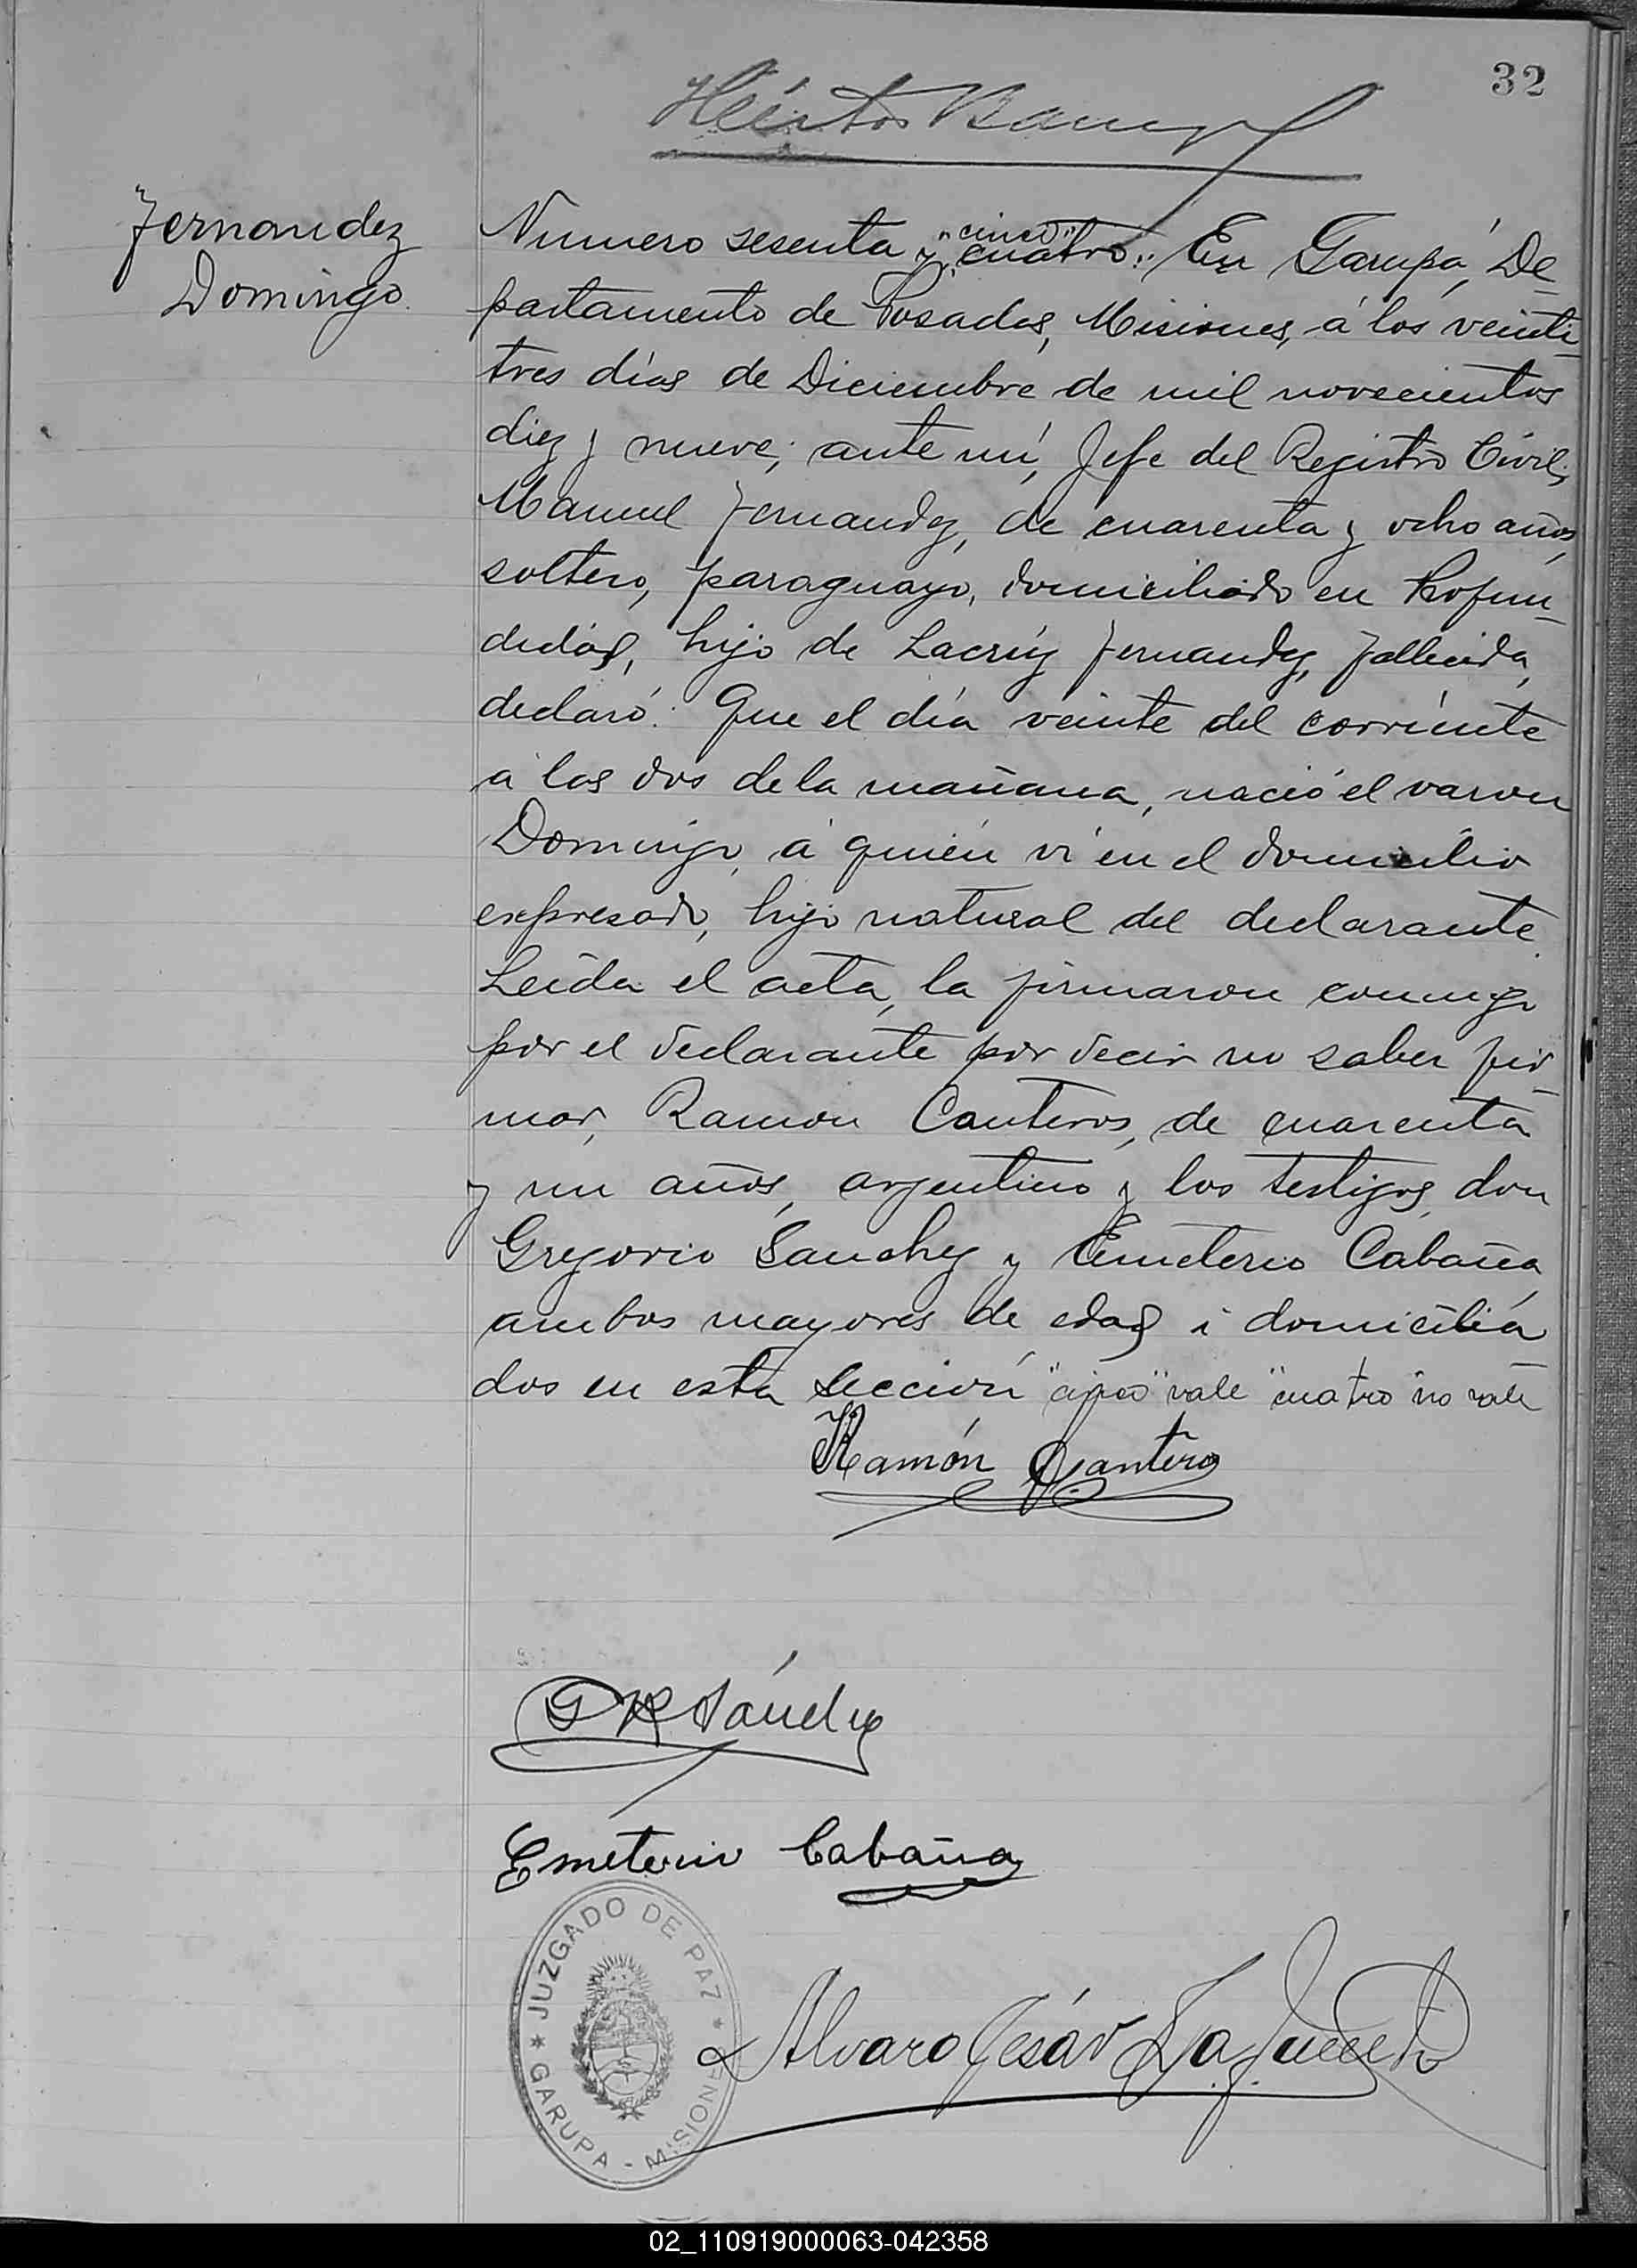 32
Héctor
Fernandez
Domingo.
Numero sesenta y "cinco" cuatro: En Garupá, De-
partamento de Posadas, Misiones, á los veinti-
tres días de Diciembre de mil novecientos
diez y nueve; ante mí, Jefe del Registro Civil,
Manuel Fernandez, de cuarenta y ocho años,
soltero, paraguayo, domiciliado en Profun-
didad, hijo de Lacrúz Fernandez, fallecida,
declaró: Que el día veinte del corriente
á las dos de la mañana, nació el varon
Domingo, á quién ví en el domicilio
expresado, hijo natural del declarante.
Leída el acta, la firmaron conmigo
por el declarante por decir no saber fir-
mar, Ramon Canteros, de cuarenta
y un años, argentino y los testigos, don
Gregorio Sanchez y Emeterio Cabaña,
ambos mayores de edad i domicilia
dos en esta sección "cinco" vale "cuatro" no vale
Ramón Cantero
G R Sánchez
Emeterio Cabaña
JUZGADO DE PAZ * GARUPA - MISIONES *
Alvaro
02_110919000063-042358